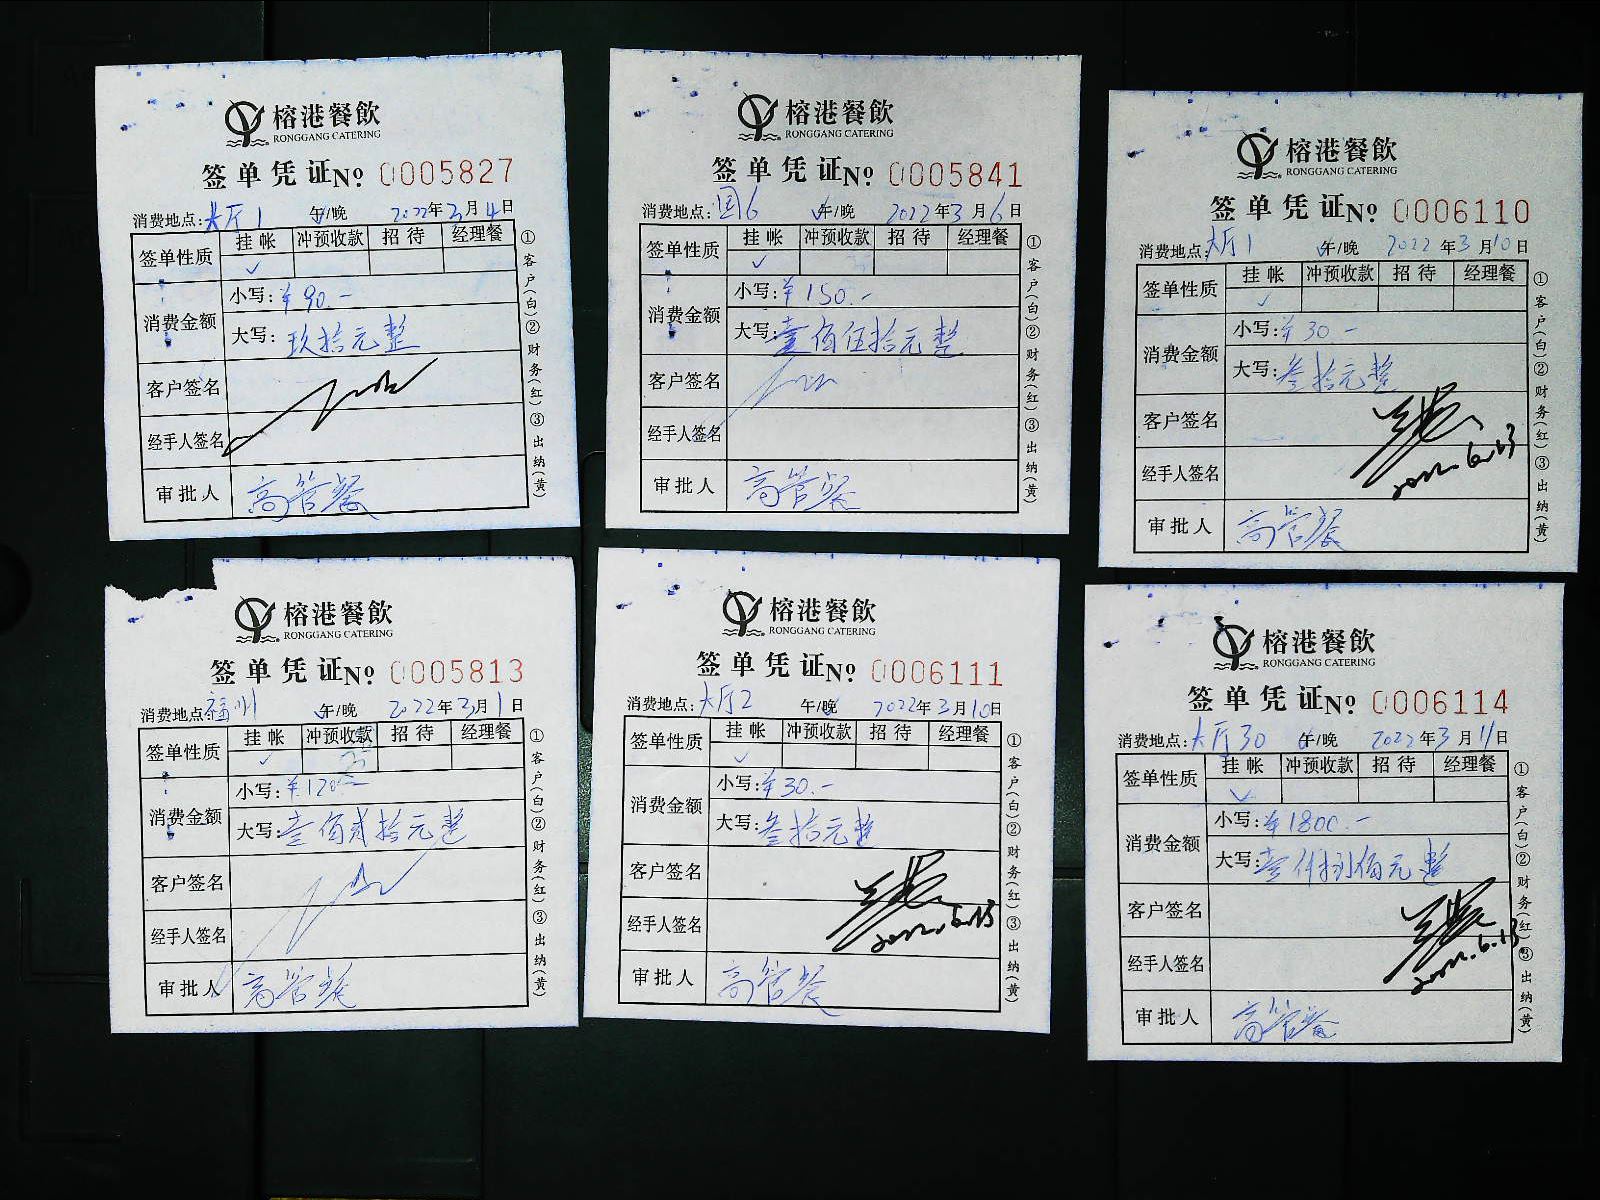 榕港餐飲
RONGGANG CATERING
签单凭证No 0005827
消费地点:大厅1 午/晚 2022年3月4日
签单性质 挂帐 冲预收款 招待 经理餐
✓
消费金额 小写:¥90.-
大写:玖拾元整
客户签名
经手人签名
审批人 高管餐
①客户(白)②财务(红)③出纳(黄)
榕港餐飲
RONGGANG CATERING
签单凭证No 0005841
消费地点:国6 午/晚 2022年3月6日
签单性质 挂帐 冲预收款 招待 经理餐
✓
消费金额 小写:¥150.-
大写:壹佰伍拾元整
客户签名
经手人签名
审批人 高管餐
①客户(白)②财务(红)③出纳(黄)
榕港餐飲
RONGGANG CATERING
签单凭证No 0006110
消费地点:大厅1 午/晚 2022年3月10日
签单性质 挂帐 冲预收款 招待 经理餐
✓
消费金额 小写:¥30.-
大写:叁拾元整
客户签名
2022.6.13
经手人签名
审批人 高管餐
①客户(白)②财务(红)③出纳(黄)
榕港餐飲
RONGGANG CATERING
签单凭证No 0005813
消费地点:福州 午/晚 2022年3月1日
签单性质 挂帐 冲预收款 招待 经理餐
✓
消费金额 小写:¥120.-
大写:壹佰贰拾元整
客户签名
经手人签名
审批人 高管餐
①客户(白)②财务(红)③出纳(黄)
榕港餐飲
RONGGANG CATERING
签单凭证No 0006111
消费地点:大厅2 午/晚 2022年3月10日
签单性质 挂帐 冲预收款 招待 经理餐
✓
消费金额 小写:¥30.-
大写:叁拾元整
客户签名
经手人签名 2022.6.13
审批人 高管餐
①客户(白)②财务(红)③出纳(黄)
榕港餐飲
RONGGANG CATERING
签单凭证No 0006114
消费地点:大厅30 午/晚 2022年3月11日
签单性质 挂帐 冲预收款 招待 经理餐
✓
消费金额 小写:¥1800.-
大写:壹仟捌佰元整
客户签名
经手人签名 2022.6.13
审批人 高管餐
①客户(白)②财务(红)③出纳(黄)